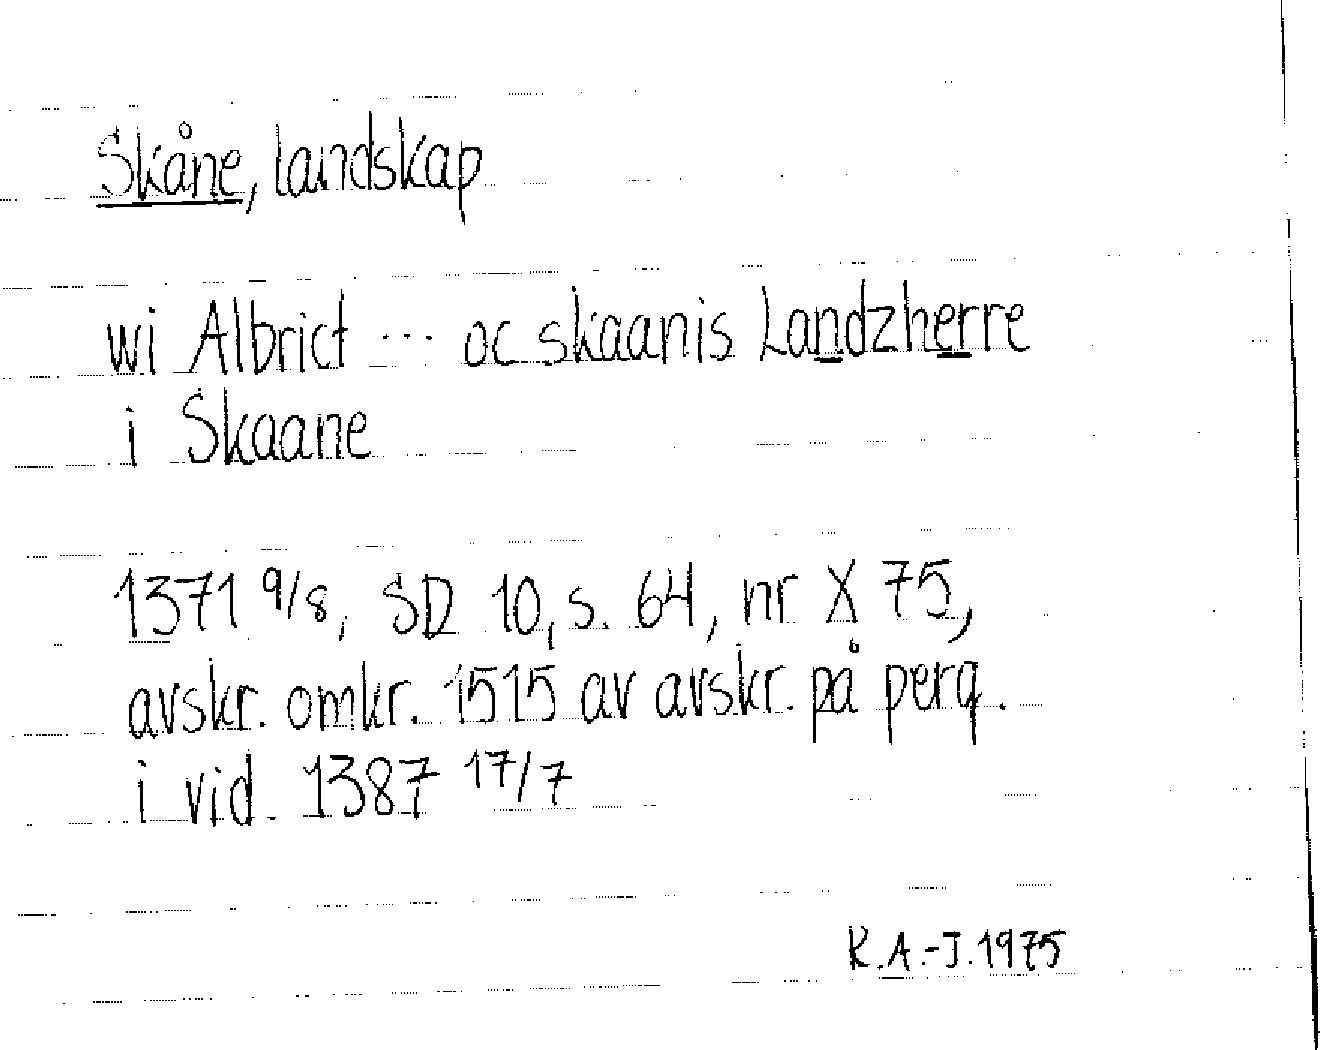 Skåne, landskap
wi Albrict ... oc skaanis Landzherre
i Skaane
1371 9/8, SD 10, s. 64, nr X 75,
avskr. omkr. 1515 av avskr. på perg.
i vid. 1387 17/7
K.A.-J. 1975